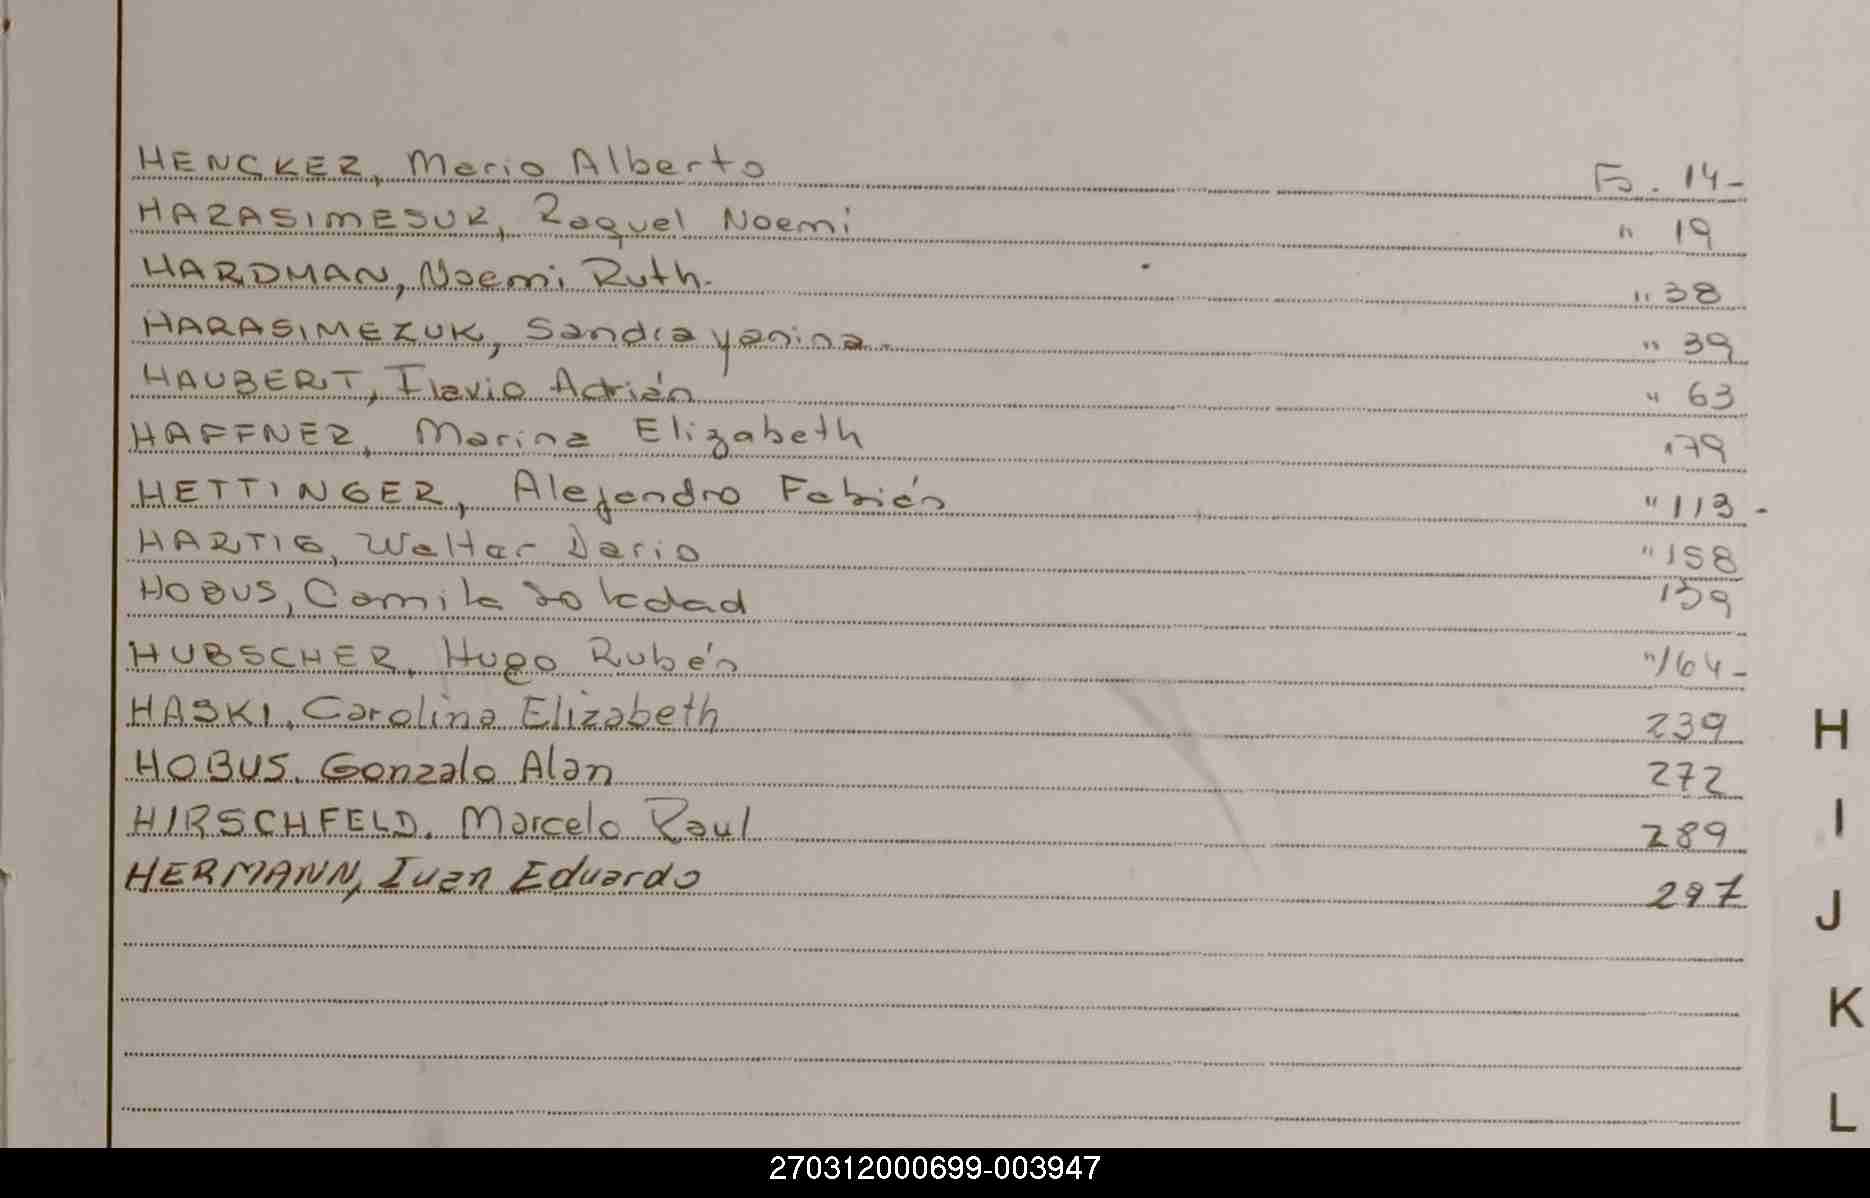 HENCKER, Mario Alberto Fo. 14-
HARASIMESUK, Raquel Noemi " 19
HARDMAN, Noemi Ruth. " 38
HARASIMEZUK, Sandra yanina. " 39
HAUBERT, Flavio Adrián " 63
HAFFNER, Marina Elizabeth " 79
HETTINGER, Alejandro Fabián " 113 -
HARTIG, Walter Dario " 158
HOBUS, Camila Soledad 159
HUBSCHER, Hugo Rubén " 164-
HASKI, Carolina Elizabeth 239
HOBUS. Gonzalo Alan 272
HIRSCHFELD. Marcelo Raul 289
HERMANN, Ivan Eduardo 297
H
I
J
K
L
270312000699-003947